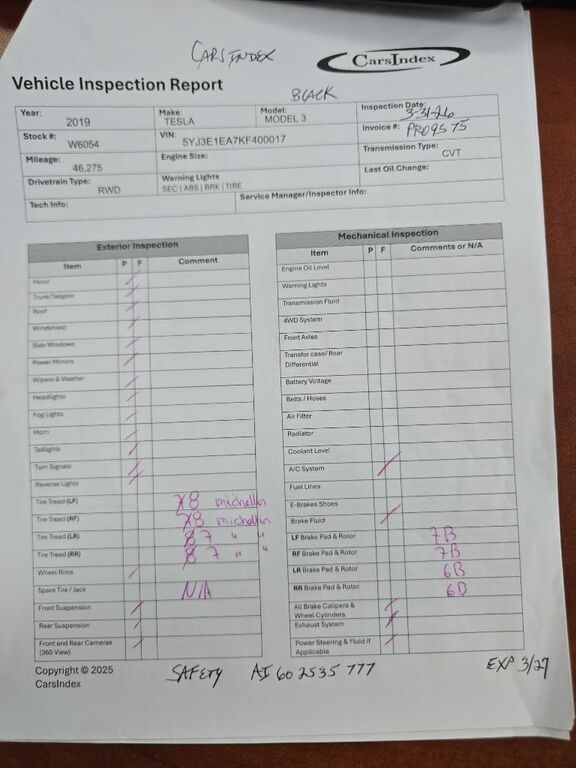 CARSINDEX
CarsIndex
Vehicle Inspection Report
BLACK
Year: 2019
Make: TESLA
Model: MODEL 3
Inspection Date: 3-31-26
Stock #: W6054
VIN: 5YJ3E1EA7KF400017
Invoice #:
Mileage: 46,275
Engine Size:
Transmission Type: CVT
Drivetrain Type: RWD
Warning Lights
SEC | ABS | BRK | TIRE
Last Oil Change:
Tech Info:
Service Manager/Inspector Info:
Exterior Inspection
Item P F Comment
Hood
Trunk/Tailgate
Roof
Windshield
Side Windows
Power Mirrors
Wipers & Washer
Headlights
Fog Lights
Horn
Taillights
Turn Signals
Reverse Lights
Tire Tread (LF) 8 michellin
Tire Tread (RF) 8 michellin
Tire Tread (LR) 7 " "
Tire Tread (RR) 7 " "
Wheel Rims
Spare Tire / Jack N/A
Front Suspension
Rear Suspension
Front and Rear Cameras
(360 View)
Mechanical Inspection
Item P F Comments or N/A
Engine Oil Level
Warning Lights
Transmission Fluid
4WD System
Front Axles
Transfer case/ Rear
Differential
Battery Voltage
Belts / Hoses
Air Filter
Radiator
Coolant Level
A/C System
Fuel Lines
E-Brakes Shoes
Brake Fluid
LF Brake Pad & Rotor 7B
RF Brake Pad & Rotor 7B
LR Brake Pad & Rotor 6B
RR Brake Pad & Rotor 6B
All Brake Calipers &
Wheel Cylinders
Exhaust System
Power Steering & Fluid if
Applicable
Copyright © 2025
CarsIndex
SAFETY AI 60 2535 777
EXP 3/27